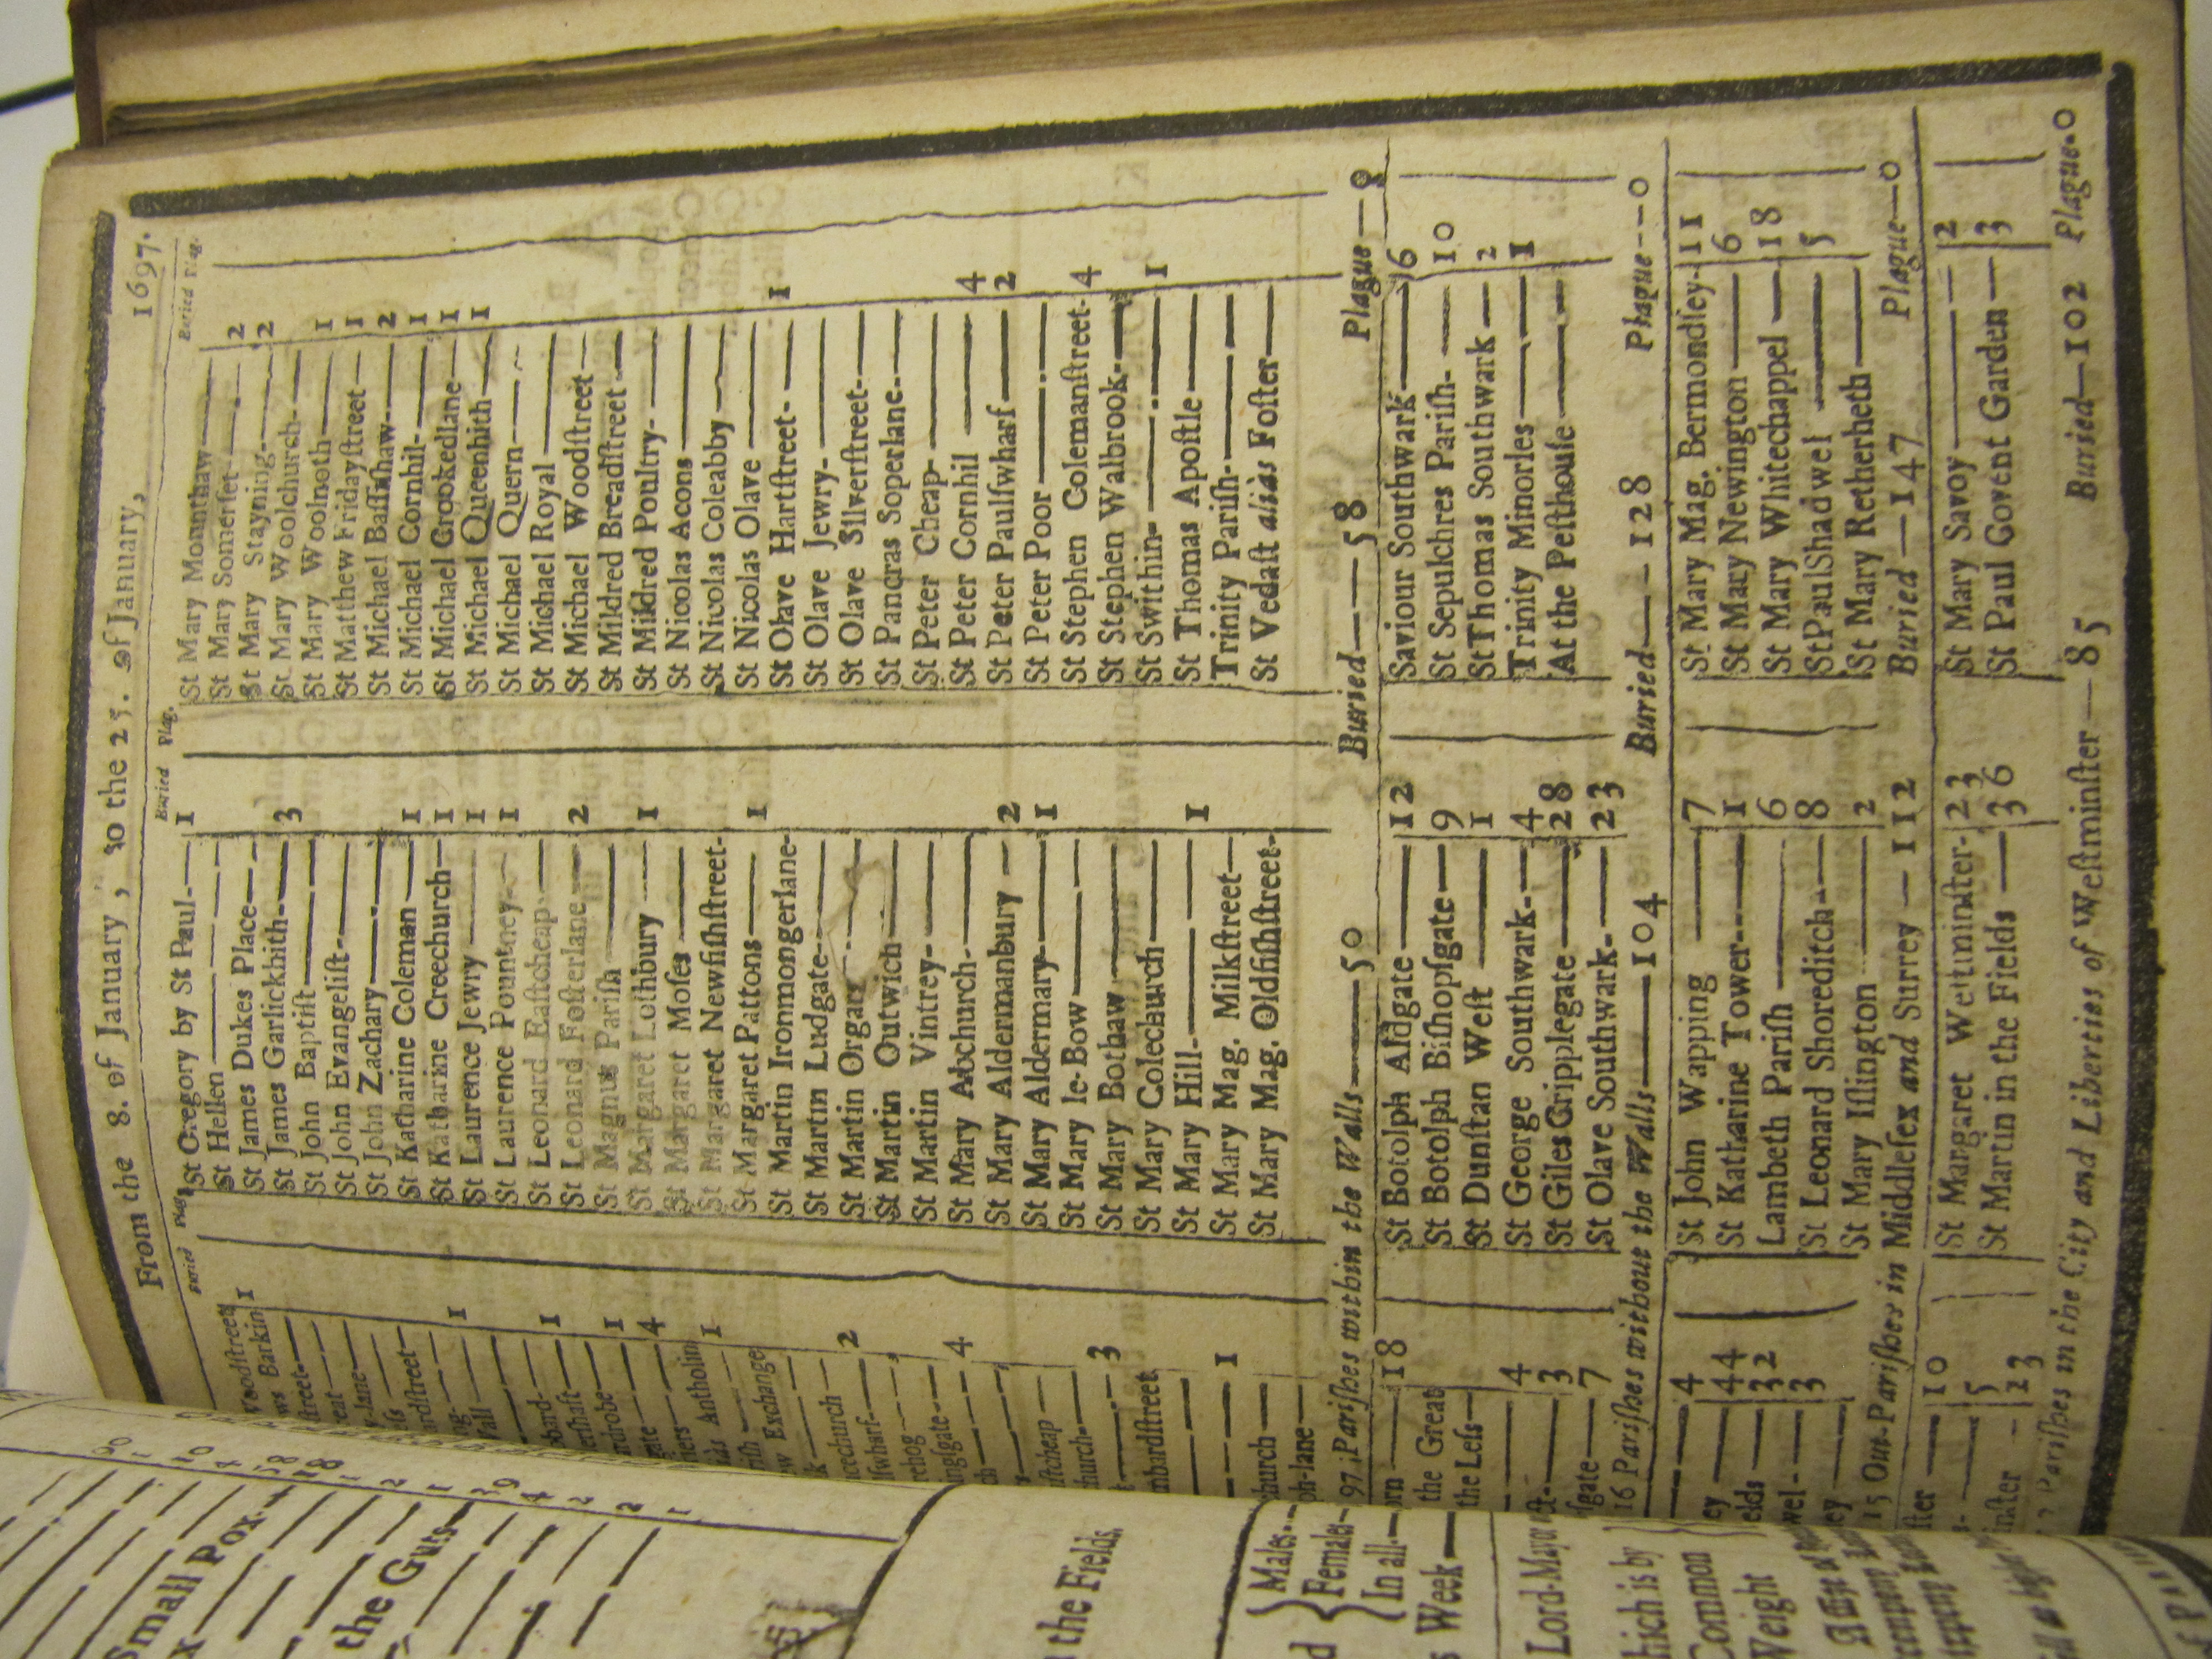 From the 8. of January, to the 25. of January, 1697.
Buried Plag.
Buried Plag.
Buried Plag.
Woodstreet
Barkin 1
street
lane
ardstreet
1
1
ardrobe 1
4
Antholin 1
Exchange
crechurch 2
swharf
rehog
ingsgate 4
ch
astcheap
hurch 3
mbardstreet
1
church
lane
St Gregory by St Paul 1
St Hellen
St James Dukes Place
St James Garlickhith 3
St John Baptist
St John Evangelist
St John Zachary
St Katharine Coleman 1
St Katharine Creechurch 1
St Laurence Jewry 1
St Laurence Pountney 1
St Leonard Eastcheap
St Leonard Fosterlane 2
St Magnus Parish
St Margaret Lothbury 1
St Margaret Moses
St Margaret Newfishstreet
St Margaret Pattons 1
St Martin Ironmongerlane
St Martin Ludgate
St Martin Orgars
St Martin Outwich
St Martin Vintrey
St Mary Abchurch
St Mary Aldermanbury 2
St Mary Aldermary 1
St Mary le-Bow
St Mary Bothaw
St Mary Colechurch
St Mary Hill 1
St Mary Mag. Milkstreet
St Mary Mag. Oldfishstreet
St Mary Mounthaw
St Mary Somerset 2
St Mary Stayning 2
St Mary Woolchurch
St Mary Woolnoth 1
St Matthew Fridaystreet 1
St Michael Bassishaw 2
St Michael Cornhil 1
St Michael Crookedlane 1
St Michael Queenhith 1
St Michael Quern
St Michael Royal
St Michael Woodstreet
St Mildred Breadstreet
St Mildred Poultry
St Nicolas Acons
St Nicolas Coleabby
St Nicolas Olave
St Olave Hartstreet 1
St Olave Jewry
St Olave Silverstreet
St Pancras Soperlane
St Peter Cheap
St Peter Cornhil 4
St Peter Paulswharf 2
St Peter Poor
St Stephen Colemanstreet 4
St Stephen Walbrook
St Swithin 1
St Thomas Apostle
Trinity Parish
St Vedast aliàs Foster
97 Parishes within the Walls — 50 Buried — 58 Plague — 0
orn 18
the Great
the Less
4
3
sgate 7
St Botolph Aldgate 12
St Botolph Bishopsgate 9
St Dunstan West 1
St George Southwark 4
St Giles Cripplegate 28
St Olave Southwark 23
Saviour Southwark 6
St Sepulchres Parish 10
St Thomas Southwark 2
Trinity Minories 1
At the Pesthouse
16 Parishes without the Walls — 104 Buried — 128 Plague — 0
4
ey 44
elds 32
wel 3
ey
St John Wapping 7
St Katharine Tower 1
Lambeth Parish 6
St Leonard Shoreditch 8
St Mary Islington 2
St Mary Mag. Bermondsey 11
St Mary Newington 6
St Mary Whitechappel 18
St Paul Shadwel 5
St Mary Retherheth
15 Out-Parishes in Middlesex and Surrey — 112 Buried — 147 Plague — 0
10
5
inster 23
St Margaret Westminster 23
St Martin in the Fields 36
St Mary Savoy 2
St Paul Covent Garden 3
Parishes in the City and Liberties of Westminster — 85 Buried — 102 Plague — 0
Small Pox
the Guts
the Fields
Males
Females
In all
Week
Lord Mayor
hich is by
Common
Weight